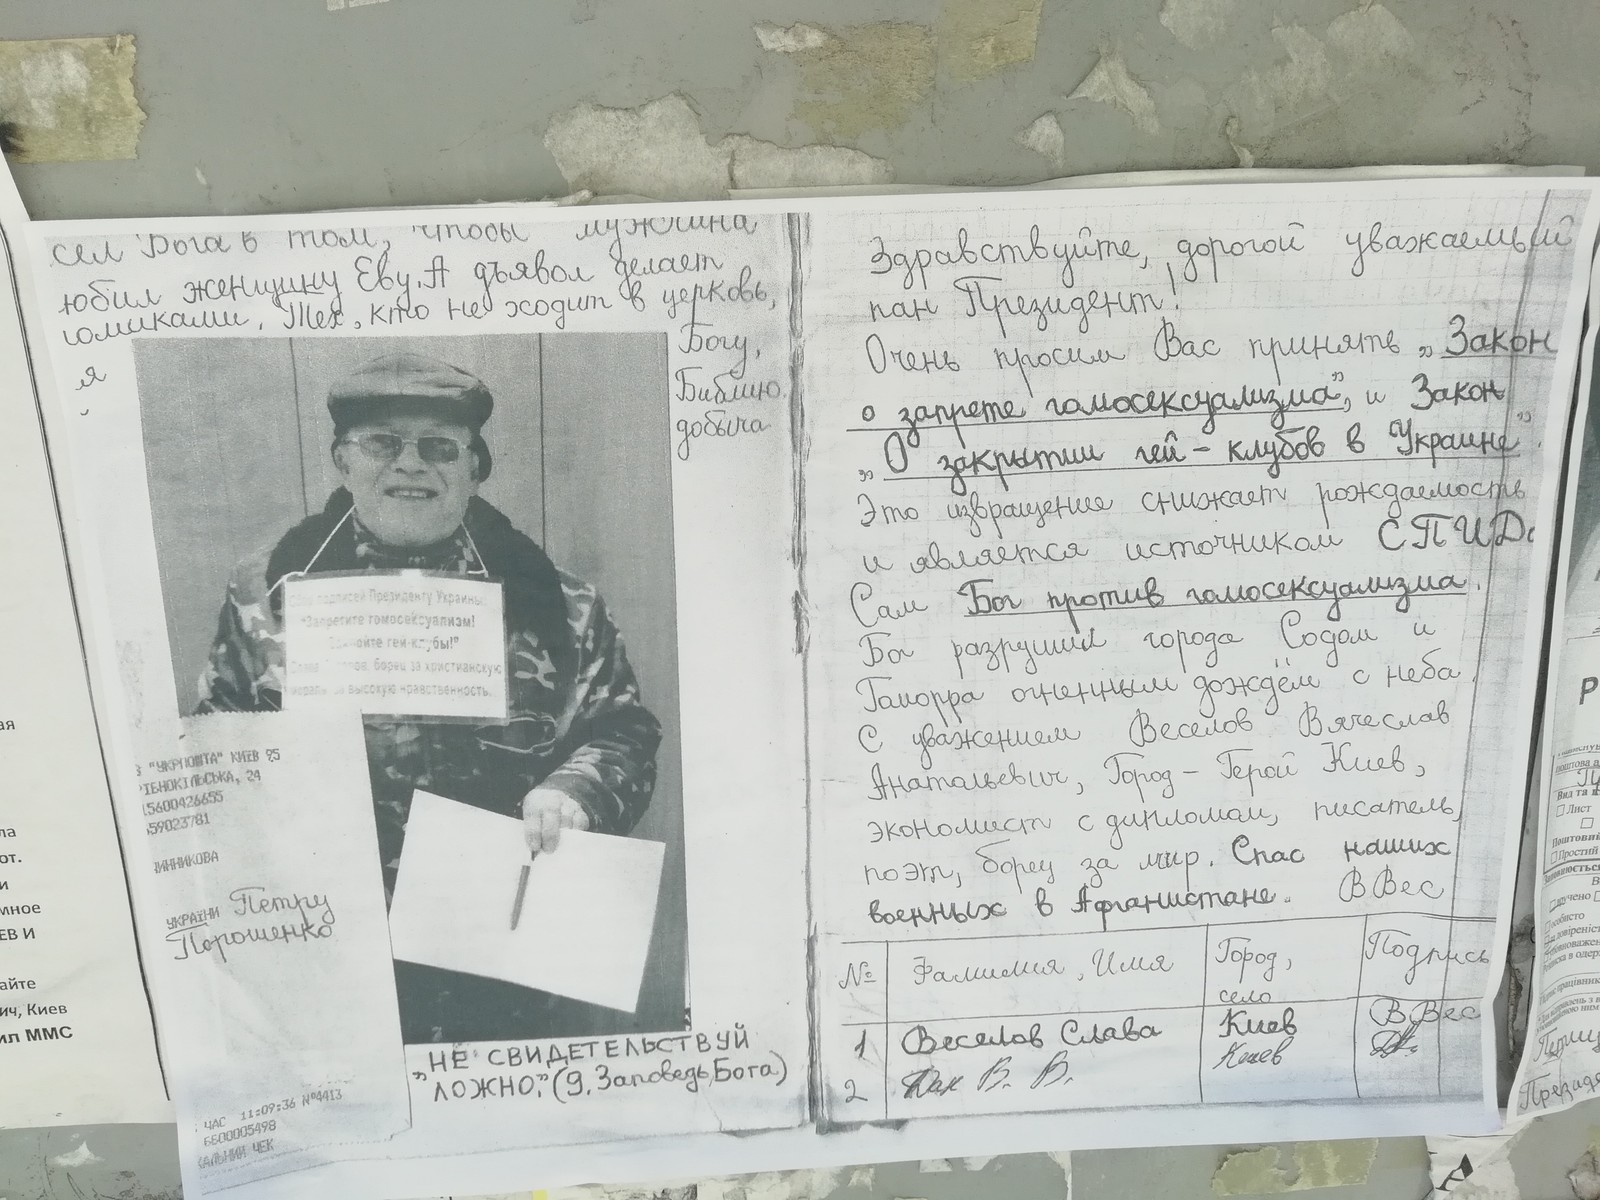 сел Бога в том, чтобы мужчина
юбил женщину Еву. А дьявол делает
юмиками. Тех, кто не ходит в церковь,
я
Богу,
Библию.
добыча
подписей Президенту Украины:
"Запретите гомосексуализм!
гей-клубы!"
борец за христианскую
за высокую нравственность.
"УКРПОШТА" КИЕВ 95
РІВНОКІЛЬСЬКА, 24
15600426655
59023781
ИННИКОВА
УКРАЇНИ Петру
Порошенко
ЧАС 11:09:36 №4413
ББ00005498
КАЛЬНИЙ ЧЕК
„НЕ СВИДЕТЕЛЬСТВУЙ
ЛОЖНО." (9. Заповедь Бога)
Здравствуйте, дорогой уважаемый
пан Президент!
Очень просим Вас принять „Закон
о запрете гомосексуализма", и Закон
„О закрытии гей-клубов в Украине".
Это извращение снижает рождаемость
и является источником СПИДа
Сам Бог против гомосексуализма.
Бог разрушил города Содом и
Гоморра огненным дождём с неба.
С уважением Веселов Вячеслав
Анатольевич, Город-Герой Киев,
экономист с дипломом, писатель,
поэт, борец за мир. Спас наших
военных в Афганистане. ВВес
№ Фамилия, Имя Город, село Подпись
1 Веселов Слава Киев ВВес
2 В. В. Киев
ая
ла
от.
и
мное
ЕВ И
айте
ич, Киев
ил ММС
Р
Вид та
Лист
Поштовий
Простий
особисто
Президе